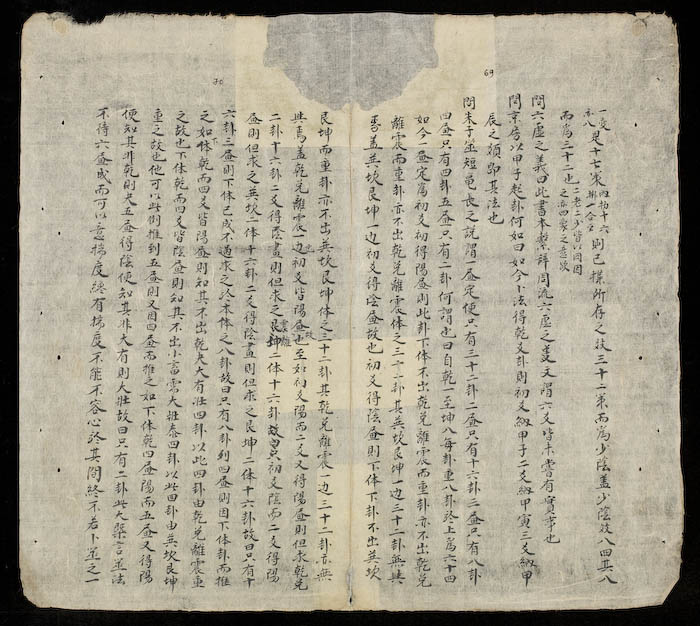 69
是十七策 則已揲所存之策三十二策而爲少陰盖少陰故八四其八
而爲三十二也 二老二小皆以四因之
問六虛之義曰此書本繫辭周流六虛之義文謂六爻皆未嘗有實事也
問京房以甲子起卦何如曰如今卜法得乾爻卦則初爻納甲子二爻納甲寅三爻納甲
辰之類即其法也
問朱子筮短龜長之說謂一畫定便只有三十二卦二畫只有十六卦三畫只有八卦
四畫只有四卦五畫只有二卦何謂也曰自乾一至坤八每卦重八卦於上爲六十四
如今一畫定爲初爻初得陽畫則此卦下体不出乾兌離震而重卦亦不出乾兌
離震而重卦亦不出乾兌離震体之三十二卦其巽坎艮坤一边三十二卦無與
焉盖巽坎艮坤一边初爻得陰畫故也初爻得陰畫則下体下卦不出巽坎
70
艮坤而重卦亦不出巽坎艮坤体之三十二卦其乾兌離震一边三十二卦亦無
與焉盖乾兌離震一边初爻皆陽畫也至如初爻陽而二爻又得陽畫則但求乾兌
二卦十六卦二爻得陰畫則但求之離震二体十六卦故只初爻陰而二爻得陽
畫則但求之巽坎二体十六卦二爻得陰畫則但求之艮坤二体十六卦故曰只有十
六卦三畫則下体已成不過求之於本体之八卦故曰只有八卦到四畫則因下体卦而推
之如下体乾而四爻皆陽畫則知其不出乾夬大有大壯四卦以此四卦由乾兌離震重
之故也下体乾而四爻皆陰畫則知其不出小畜需大壯泰四卦以此四卦由巽坎艮坤
重之故也他可以此例推到五畫則又因四畫而推之如下体乾四畫陽而五畫又得陽
便知其非乾則夬五畫得陰便知其非大有則大壯故曰只有二卦此大槩言筮法
不待六畫成而可以意揣度終有揣度不能不容心於其間終不若卜筮之一